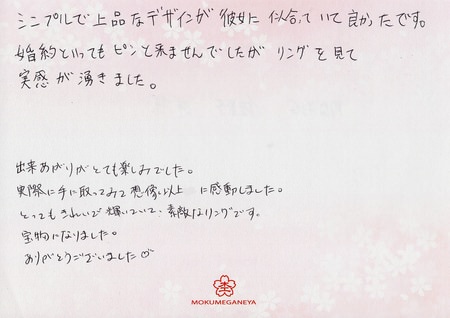 シンプルで上品なデザインが彼女に似合っていて良かったです。
婚約といってもピンと来ませんでしたがリングを見て
実感が湧きました。
出来あがりがとても楽しみでした。
実際に手に取ってみて想像以上に感動しました。
とってもきれいで輝いていて、素敵なリングです。
宝物になりました。
ありがとうございました♡
MOKUMEGANEYA